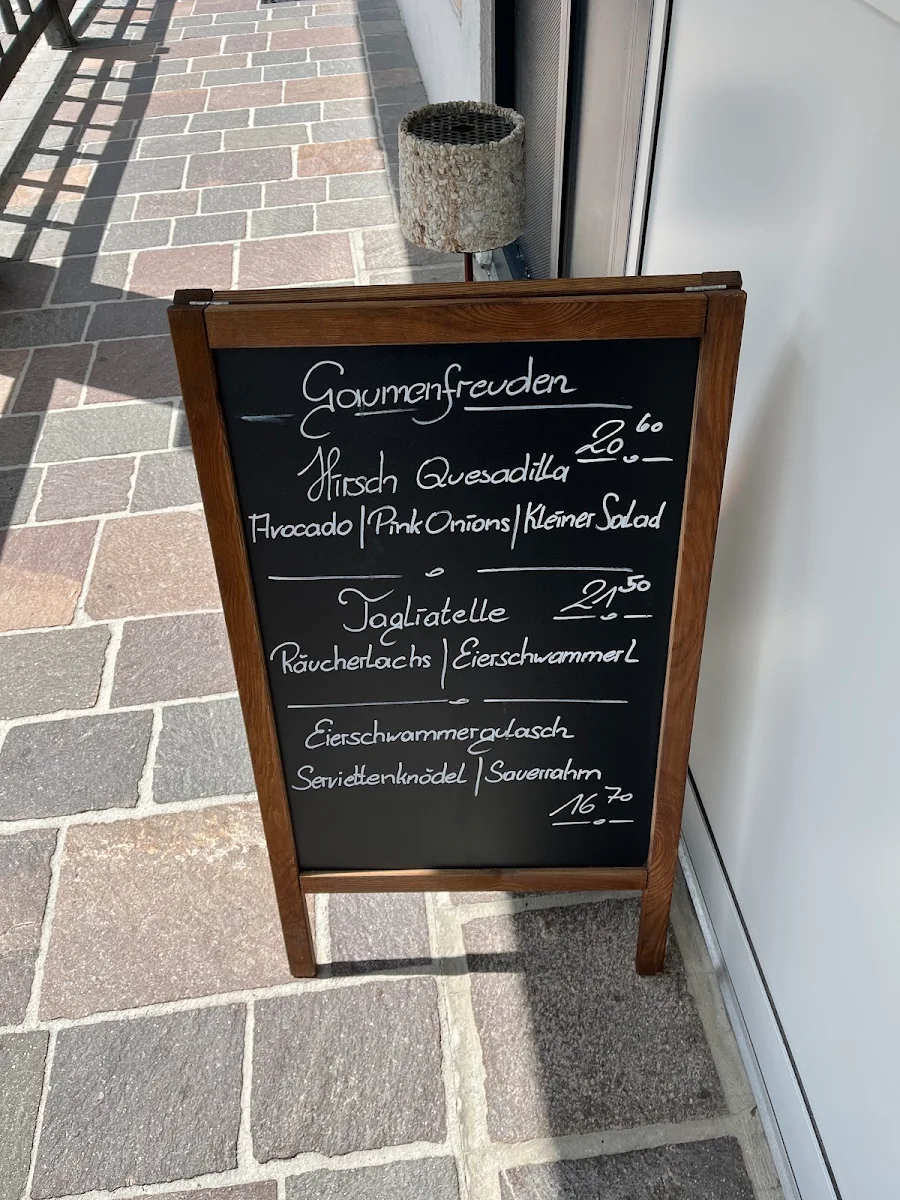 Gaumenfreuden
20.60
Hirsch Quesadilla
Avocado | Pink Onions | Kleiner Salad
21.50
Tagliatelle
Räucherlachs | Eierschwammerl
Eierschwammergulasch
Serviettenknödel | Sauerrahm
16.70